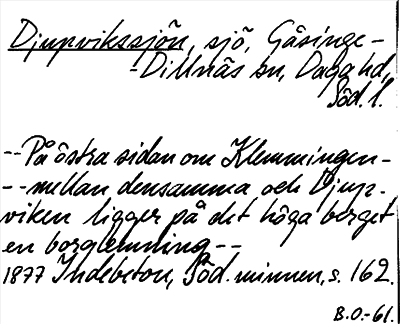 Djupvikssjön, sjö, Gåsinge-
-Dillnäs sn, Daga hd,
Söd. l.
--På östra sidan om Klemmingen-
--mellan densamma och Djup-
viken ligger på det höga berget
en borglemning--
1877 Indebetou, Söd. minnen, s. 162.
B.O.-61.